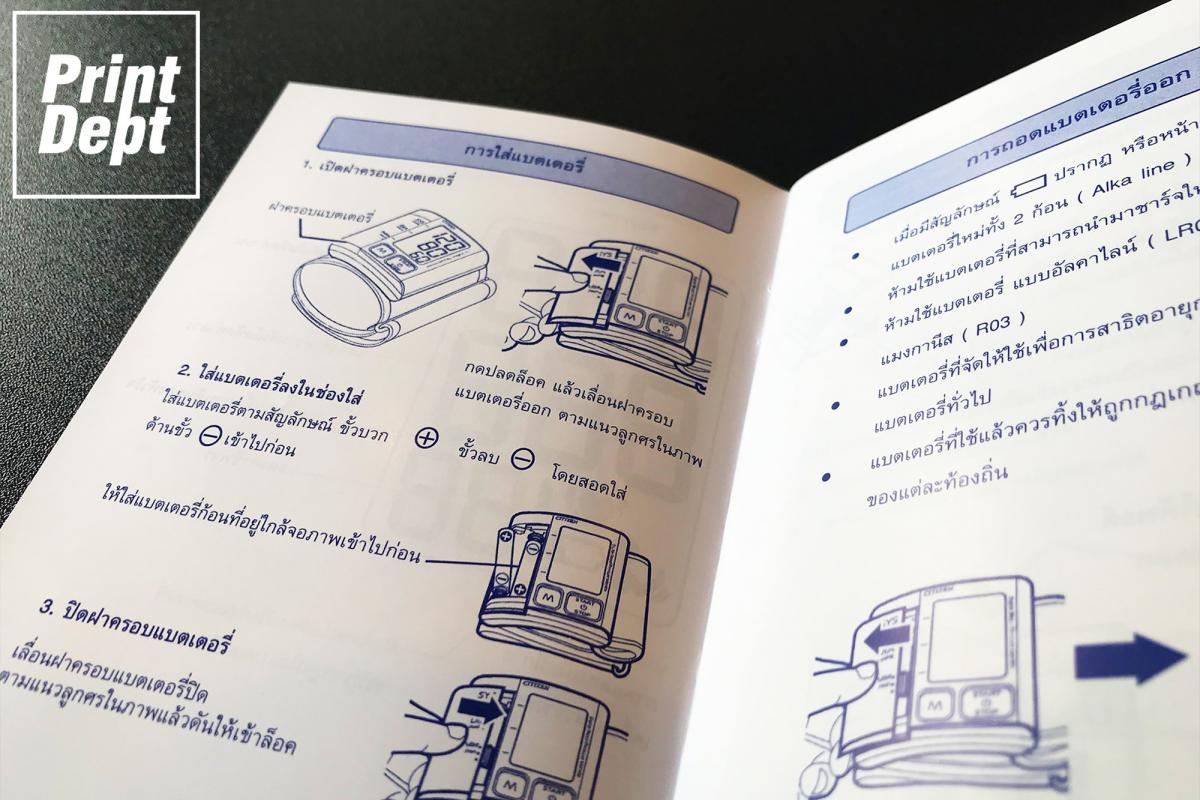 Print
Dept
การใส่แบตเตอรี่
1. เปิดฝาครอบแบตเตอรี่
ฝาครอบแบตเตอรี่
กดปลดล็อค แล้วเลื่อนฝาครอบ
แบตเตอรี่ออก ตามแนวลูกศรในภาพ
2. ใส่แบตเตอรี่ลงในช่องใส่
ใส่แบตเตอรี่ตามสัญลักษณ์ ขั้วบวก ⊕ ขั้วลบ ⊖ โดยสอดใส่
ด้านขั้ว ⊖ เข้าไปก่อน
ให้ใส่แบตเตอรี่ก้อนที่อยู่ใกล้จอภาพเข้าไปก่อน
CITIZEN
M
START
STOP
3. ปิดฝาครอบแบตเตอรี่
เลื่อนฝาครอบแบตเตอรี่ปิด
ตามแนวลูกศรในภาพแล้วดันให้เข้าล็อค
CITIZEN
M
START
การถอดแบตเตอรี่ออก
• เมื่อมีสัญลักษณ์ ปรากฏ หรือหน้า
แบตเตอรี่ใหม่ทั้ง 2 ก้อน ( Alka line )
• ห้ามใช้แบตเตอรี่ที่สามารถนำมาชาร์จให
• ห้ามใช้แบตเตอรี่ แบบอัลคาไลน์ ( LR0
แมงกานีส ( R03 )
• แบตเตอรี่ที่จัดให้ใช้เพื่อการสาธิตอายุก
แบตเตอรี่ทั่วไป
• แบตเตอรี่ที่ใช้แล้วควรทิ้งให้ถูกกฎเกณ
ของแต่ละท้องถิ่น
CITIZEN
M
START
STOP